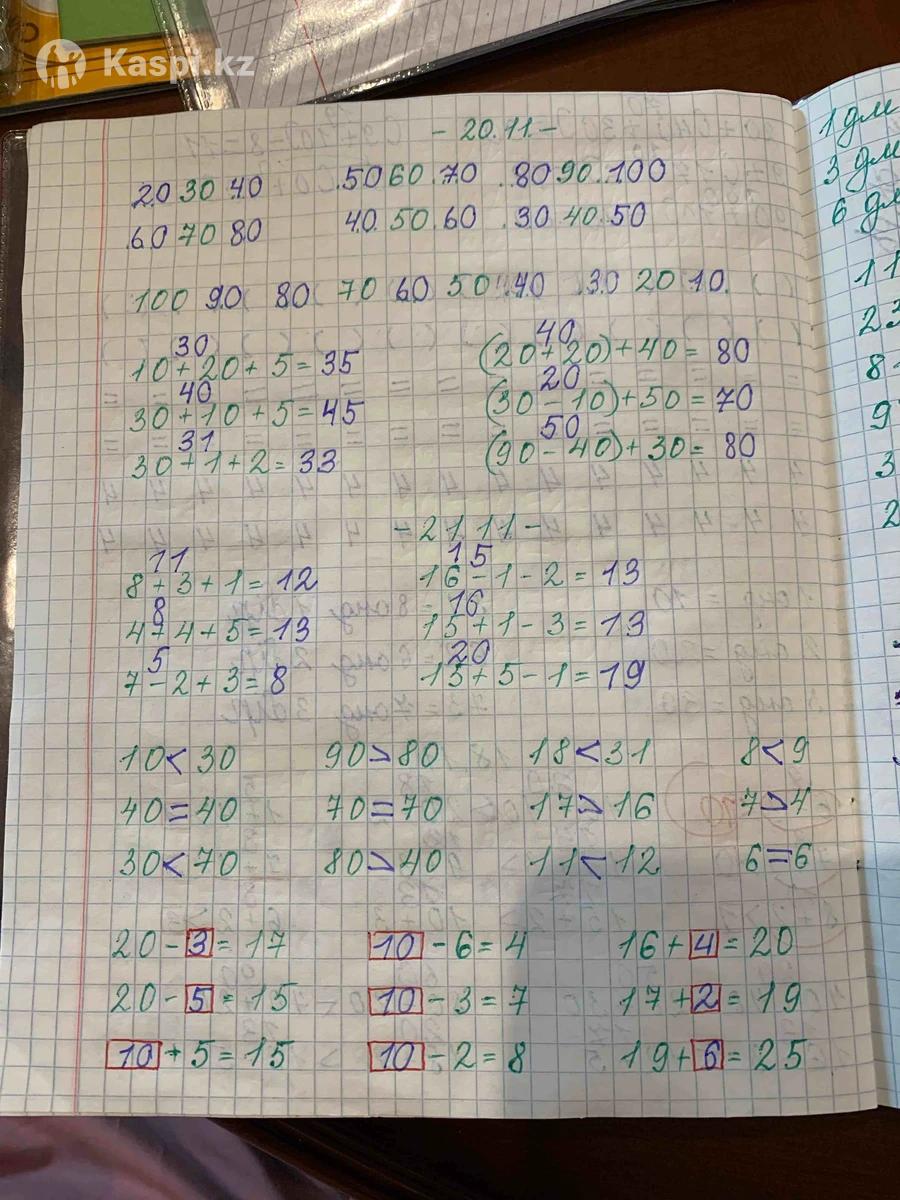 Kaspi.kz
- 20.11.-
20 30 40 50 60 70 80 90 100
60 70 80 40 50 60 30 40 50
100 90 80 70 60 50 40 30 20 10
30 40
10+20+5=35 (20+20)+40=80
40 20
30+10+5=45 (30-10)+50=70
31 50
30+1+2=33 (90-40)+30=80
-21.11-
11 15
8+3+1=12 16-1-2=13
8 16
4+4+5=13 15+1-3=13
5 20
7-2+3=8 15+5-1=19
10<30 90>80 18<31 8<9
40=40 70=70 17>16 7>4
30<70 80>40 11<12 6=6
20-3=17 10-6=4 16+4=20
20-5=15 10-3=7 17+2=19
10+5=15 10-2=8 19+6=25
1 дм
3 дм
6 дм